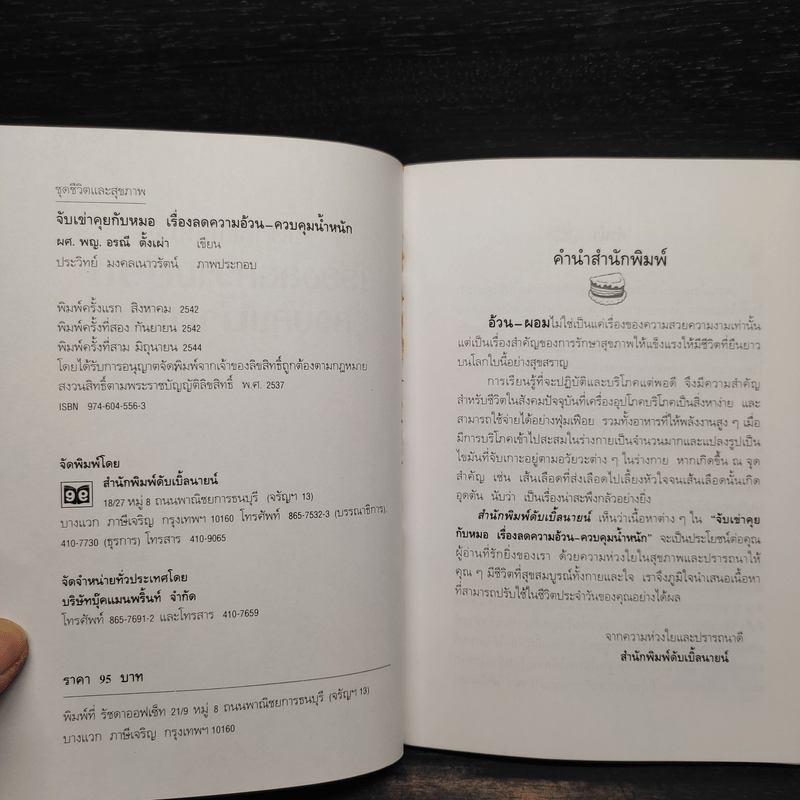 ชุดชีวิตและสุขภาพ
จับเข่าคุยกับหมอ เรื่องลดความอ้วน–ควบคุมน้ำหนัก
ผศ. พญ. อรณี ตั้งเผ่า เขียน
ประวิทย์ มงคลเนาวรัตน์ ภาพประกอบ
พิมพ์ครั้งแรก สิงหาคม 2542
พิมพ์ครั้งที่สอง กันยายน 2542
พิมพ์ครั้งที่สาม มิถุนายน 2544
โดยได้รับการอนุญาตจัดพิมพ์จากเจ้าของลิขสิทธิ์ถูกต้องตามกฎหมาย
สงวนสิทธิ์ตามพระราชบัญญัติลิขสิทธิ์ พ.ศ. 2537
ISBN 974-604-556-3
จัดพิมพ์โดย
สำนักพิมพ์ดับเบิ้ลนายน์
18/27 หมู่ 8 ถนนพาณิชยการธนบุรี (จรัญฯ 13)
บางแวก ภาษีเจริญ กรุงเทพฯ 10160 โทรศัพท์ 865-7532-3 (บรรณาธิการ),
410-7730 (ธุรการ) โทรสาร 410-9065
จัดจำหน่ายทั่วประเทศโดย
บริษัทบุ๊คแมนพริ้นท์ จำกัด
โทรศัพท์ 865-7691-2 และโทรสาร 410-7659
ราคา 95 บาท
พิมพ์ที่ รัชดาออฟเซ็ท 21/9 หมู่ 8 ถนนพาณิชยการธนบุรี (จรัญฯ 13)
บางแวก ภาษีเจริญ กรุงเทพฯ 10160
คำนำสำนักพิมพ์
อ้วน–ผอมไม่ใช่เป็นแค่เรื่องของความสวยความงามเท่านั้น
แต่เป็นเรื่องสำคัญของการรักษาสุขภาพให้แข็งแรงให้มีชีวิตที่ยืนยาว
บนโลกใบนี้อย่างสุขสราญ
การเรียนรู้ที่จะปฏิบัติและบริโภคแต่พอดี จึงมีความสำคัญ
สำหรับชีวิตในสังคมปัจจุบันที่เครื่องอุปโภคบริโภคเป็นสิ่งหาง่าย และ
สามารถใช้จ่ายได้อย่างฟุ่มเฟือย รวมทั้งอาหารที่ให้พลังงานสูง ๆ เมื่อ
มีการบริโภคเข้าไปสะสมในร่างกายเป็นจำนวนมากและแปลงรูปเป็น
ไขมันที่จับเกาะอยู่ตามอวัยวะต่าง ๆ ในร่างกาย หากเกิดขึ้น ณ จุด
สำคัญ เช่น เส้นเลือดที่ส่งเลือดไปเลี้ยงหัวใจจนเส้นเลือดนั้นเกิด
อุดตัน นับว่า เป็นเรื่องน่าสะพึงกลัวอย่างยิ่ง
สำนักพิมพ์ดับเบิ้ลนายน์ เห็นว่าเนื้อหาต่าง ๆ ใน “จับเข่าคุย
กับหมอ เรื่องลดความอ้วน-ควบคุมน้ำหนัก” จะเป็นประโยชน์ต่อคุณ
ผู้อ่านที่รักยิ่งของเรา ด้วยความห่วงใยในสุขภาพและปรารถนาให้
คุณ ๆ มีชีวิตที่สุขสมบูรณ์ทั้งกายและใจ เราจึงภูมิใจนำเสนอเนื้อหา
ที่สามารถปรับใช้ในชีวิตประจำวันของคุณอย่างได้ผล
จากความห่วงใยและปรารถนาดี
สำนักพิมพ์ดับเบิ้ลนายน์